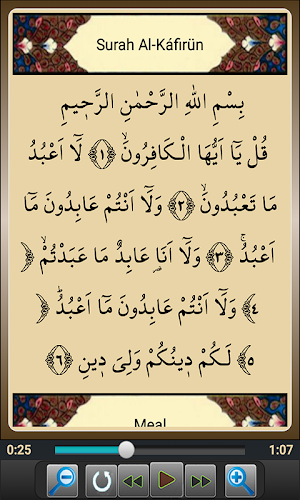 Surah Al-Káfirün
بِسْمِ اللهِ الرَّحْمٰنِ الرَّحِيمِ
قُلْ يَٓا اَيُّهَا الْكَافِرُونَۙ ﴿١﴾ لَٓا اَعْبُدُ
مَا تَعْبُدُونَۙ ﴿٢﴾ وَلَٓا اَنْتُمْ عَابِدُونَ مَٓا
اَعْبُدُۚ ﴿٣﴾ وَلَٓا اَنَا۬ عَابِدٌ مَا عَبَدْتُمْۙ ﴿
٤﴾ وَلَٓا اَنْتُمْ عَابِدُونَ مَٓا اَعْبُدُۜ ﴿
٥﴾ لَكُمْ دٖينُكُمْ وَلِيَ دٖينِ ﴿٦﴾
Meal
0:25 1:07